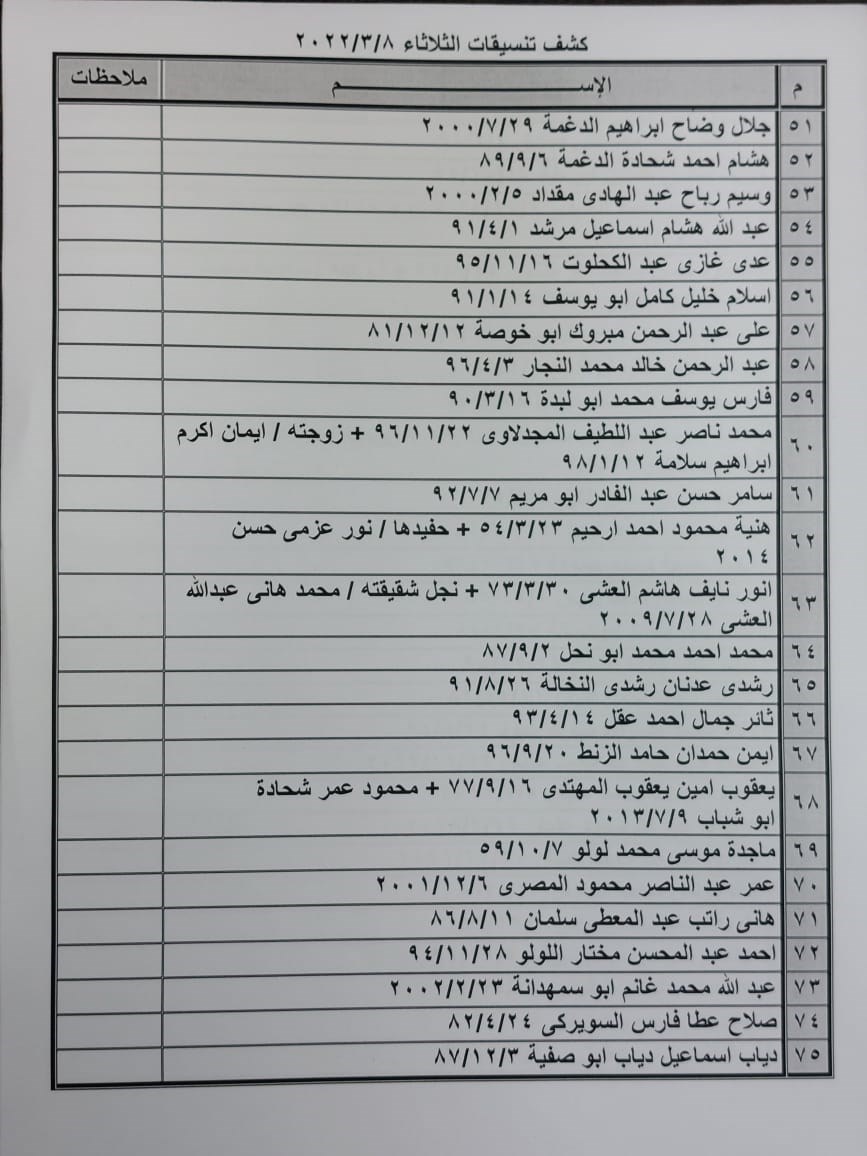 كشف تنسيقات الثلاثاء ٢٠٢٢/٣/٨
م الإســـــــم ملاحظات
٥١ جلال وضاح ابراهيم الدغمة ٢٠٠٠/٧/٢٩
٥٢ هشام احمد شحادة الدغمة ٨٩/٩/٦
٥٣ وسيم رباح عبد الهادى مقداد ٢٠٠٠/٢/٥
٥٤ عبد الله هشام اسماعيل مرشد ٩١/٤/١
٥٥ عدى غازى عبد الكحلوت ٩٥/١١/١٦
٥٦ اسلام خليل كامل ابو يوسف ٩١/١/١٤
٥٧ على عبد الرحمن مبروك ابو خوصة ٨١/١٢/١٢
٥٨ عبد الرحمن خالد محمد النجار ٩٦/٤/٣
٥٩ فارس يوسف محمد ابو لبدة ٩٠/٣/١٦
٦٠ محمد ناصر عبد اللطيف المجدلاوى ٩٦/١١/٢٢ + زوجته / ايمان اكرم
ابراهيم سلامة ٩٨/١/١٢
٦١ سامر حسن عبد الفادر ابو مريم ٩٢/٧/٧
٦٢ هنية محمود احمد ارحيم ٥٤/٣/٢٣ + حفيدها / نور عزمى حسن
٢٠١٤
٦٣ انور نايف هاشم العشى ٧٣/٣/٣٠ + نجل شقيقته / محمد هانى عبدالله
العشى ٢٠٠٩/٧/٢٨
٦٤ محمد احمد محمد ابو نحل ٨٧/٩/٢
٦٥ رشدى عدنان رشدى النخالة ٩١/٨/٢٦
٦٦ ثائر جمال احمد عقل ٩٣/٤/١٤
٦٧ ايمن حمدان حامد الزنط ٩٦/٩/٢٠
٦٨ يعقوب امين يعقوب المهتدى ٧٧/٩/١٦ + محمود عمر شحادة
ابو شباب ٢٠١٣/٧/٩
٦٩ ماجدة موسى محمد لولو ٥٩/١٠/٧
٧٠ عمر عبد الناصر محمود المصرى ٢٠٠١/١٢/٦
٧١ هانى راتب عبد المعطى سلمان ٨٦/٨/١١
٧٢ احمد عبد المحسن مختار اللولو ٩٤/١١/٢٨
٧٣ عبد الله محمد غانم ابو سمهدانة ٢٠٠٢/٢/٢٣
٧٤ صلاح عطا فارس السويركى ٨٢/٤/٢٤
٧٥ دياب اسماعيل دياب ابو صفية ٨٧/١٢/٣